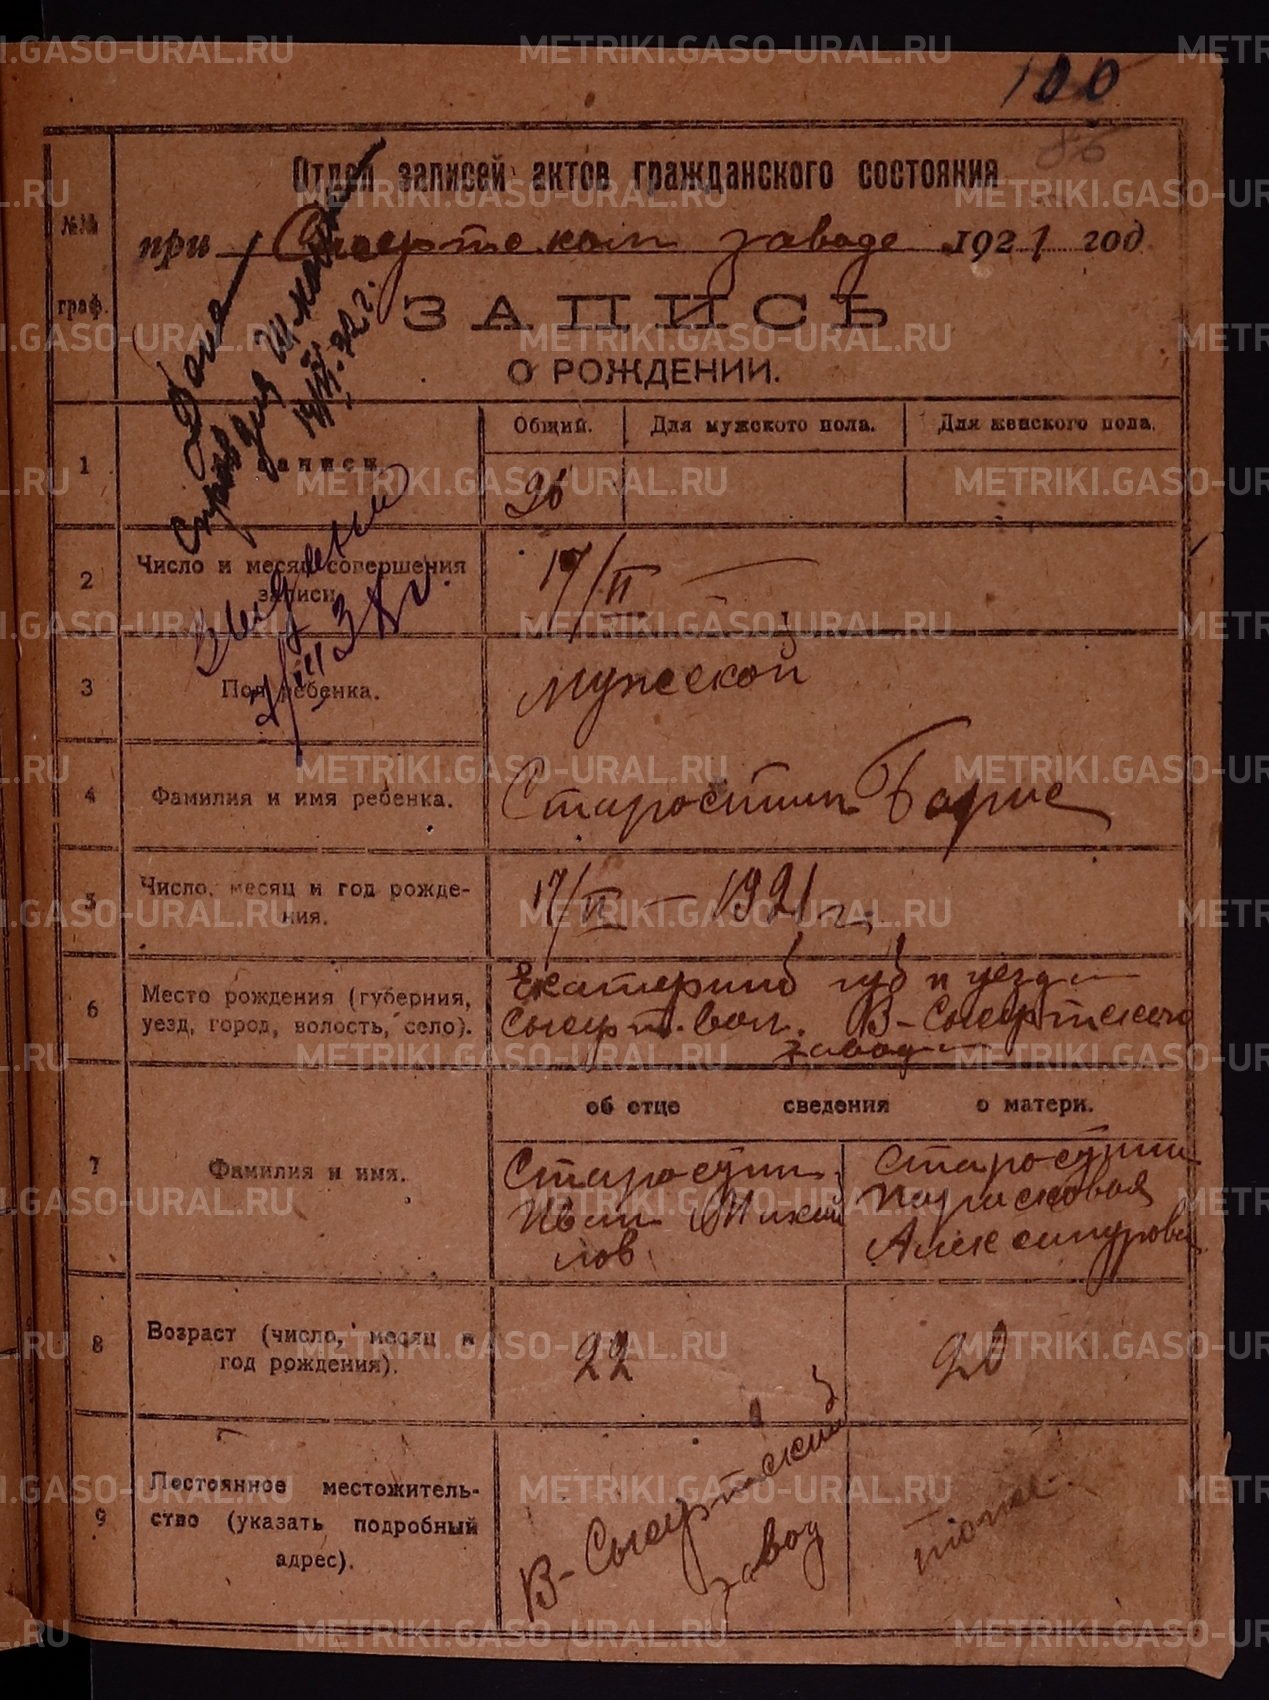 100
86
Отдел записей актов гражданского состояния
при Сысертском заводе 1921 год
№№ граф.
ЗАПИСЬ
О РОЖДЕНИИ.
Дана
справ для
14/VI-32 г.
Выд
1
записи.
Общий.
Для мужского пола.
Для женского пола.
26
2
Число и месяц совершения
записи.
17/II —
3
Пол ребенка.
мужской
4
Фамилия и имя ребенка.
Старостин Борис
5
Число, месяц и год рожде-
ния.
17/II — 1921 г.
6
Место рождения (губерния,
уезд, город, волость, село).
Екатеринб губ и уезда
Сысерт. вол. В-Сысертского
завода
об отце сведения о матери.
7
Фамилия и имя.
Старостин
Иван Михай
лов
Старостин
Парасковья
Александровн
8
Возраст (число, месяц и
год рождения).
22
20
9
Постоянное местожитель-
ство (указать подробный
адрес).
В-Сысертский
завод
тоже
METRIKI.GASO-URAL.RU